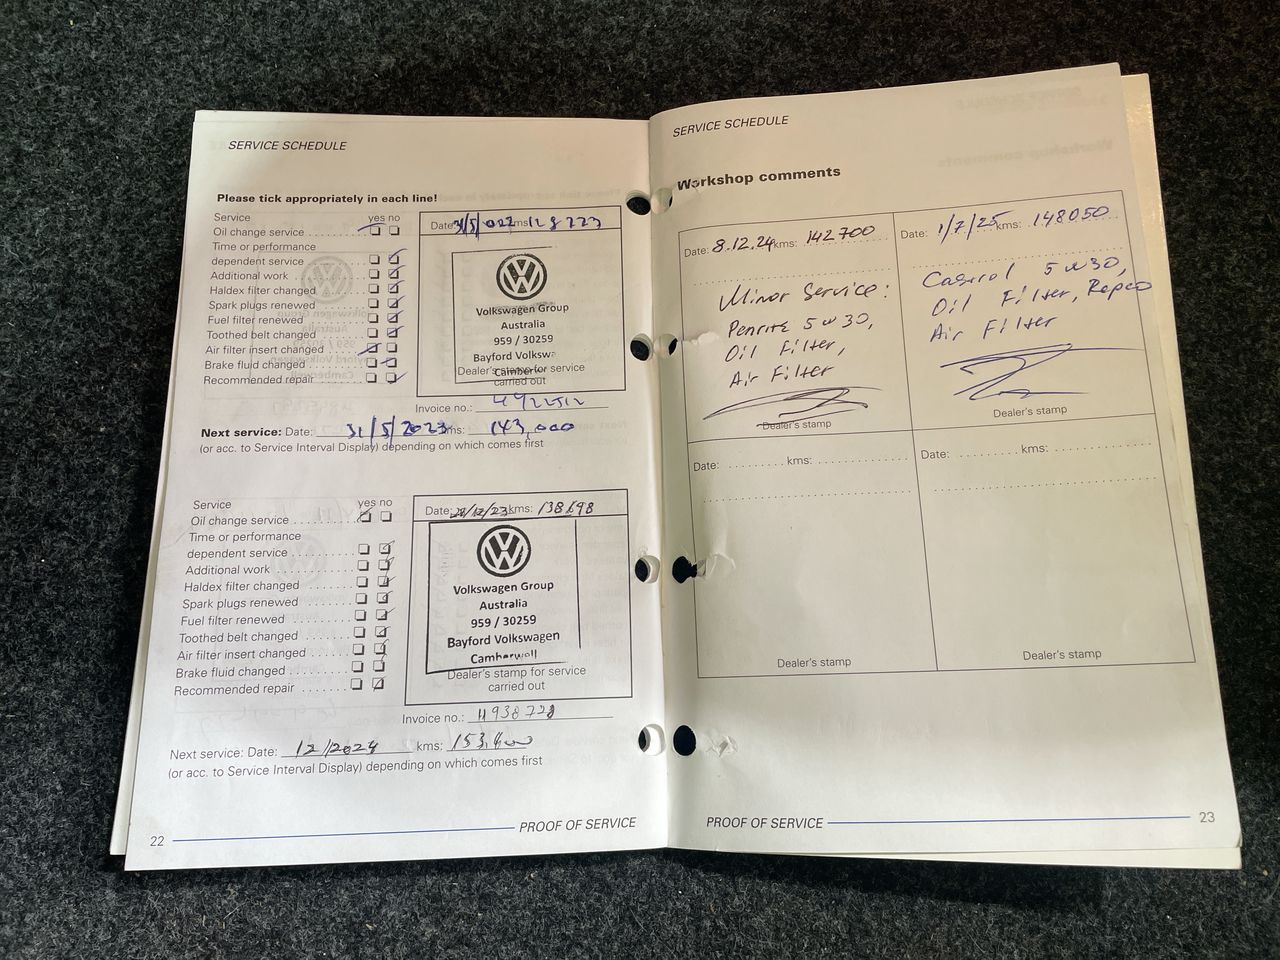 SERVICE SCHEDULE
Please tick appropriately in each line!
Service yes no
Oil change service
Time or performance
dependent service
Additional work
Haldex filter changed
Spark plugs renewed
Fuel filter renewed
Toothed belt changed
Air filter insert changed
Brake fluid changed
Recommended repair
Date: 31/5/2022 kms: 128223
Volkswagen Group
Australia
959 / 30259
Bayford Volkswa
Camberw
Dealer's stamp for service
carried out
Invoice no.:
Next service: Date: 31/5/2023 kms: 143,000
(or acc. to Service Interval Display) depending on which comes first
Service yes no
Oil change service
Time or performance
dependent service
Additional work
Haldex filter changed
Spark plugs renewed
Fuel filter renewed
Toothed belt changed
Air filter insert changed
Brake fluid changed
Recommended repair
Date: /12/23 kms: 138698
Volkswagen Group
Australia
959 / 30259
Bayford Volkswagen
Camberwell
Dealer's stamp for service
carried out
Invoice no.: 4938728
Next service: Date: 12/2024 kms: 153,600
(or acc. to Service Interval Display) depending on which comes first
22 PROOF OF SERVICE
SERVICE SCHEDULE
Workshop comments
Date: 8.12.24 kms: 142700
Minor Service:
Penrite 5w30,
Oil Filter,
Air Filter
Dealer's stamp
Date: 1/7/25 kms: 148050
Castrol 5w30,
Oil Filter, Repco
Air Filter
Dealer's stamp
Date: kms:
Dealer's stamp
Date: kms:
Dealer's stamp
PROOF OF SERVICE 23